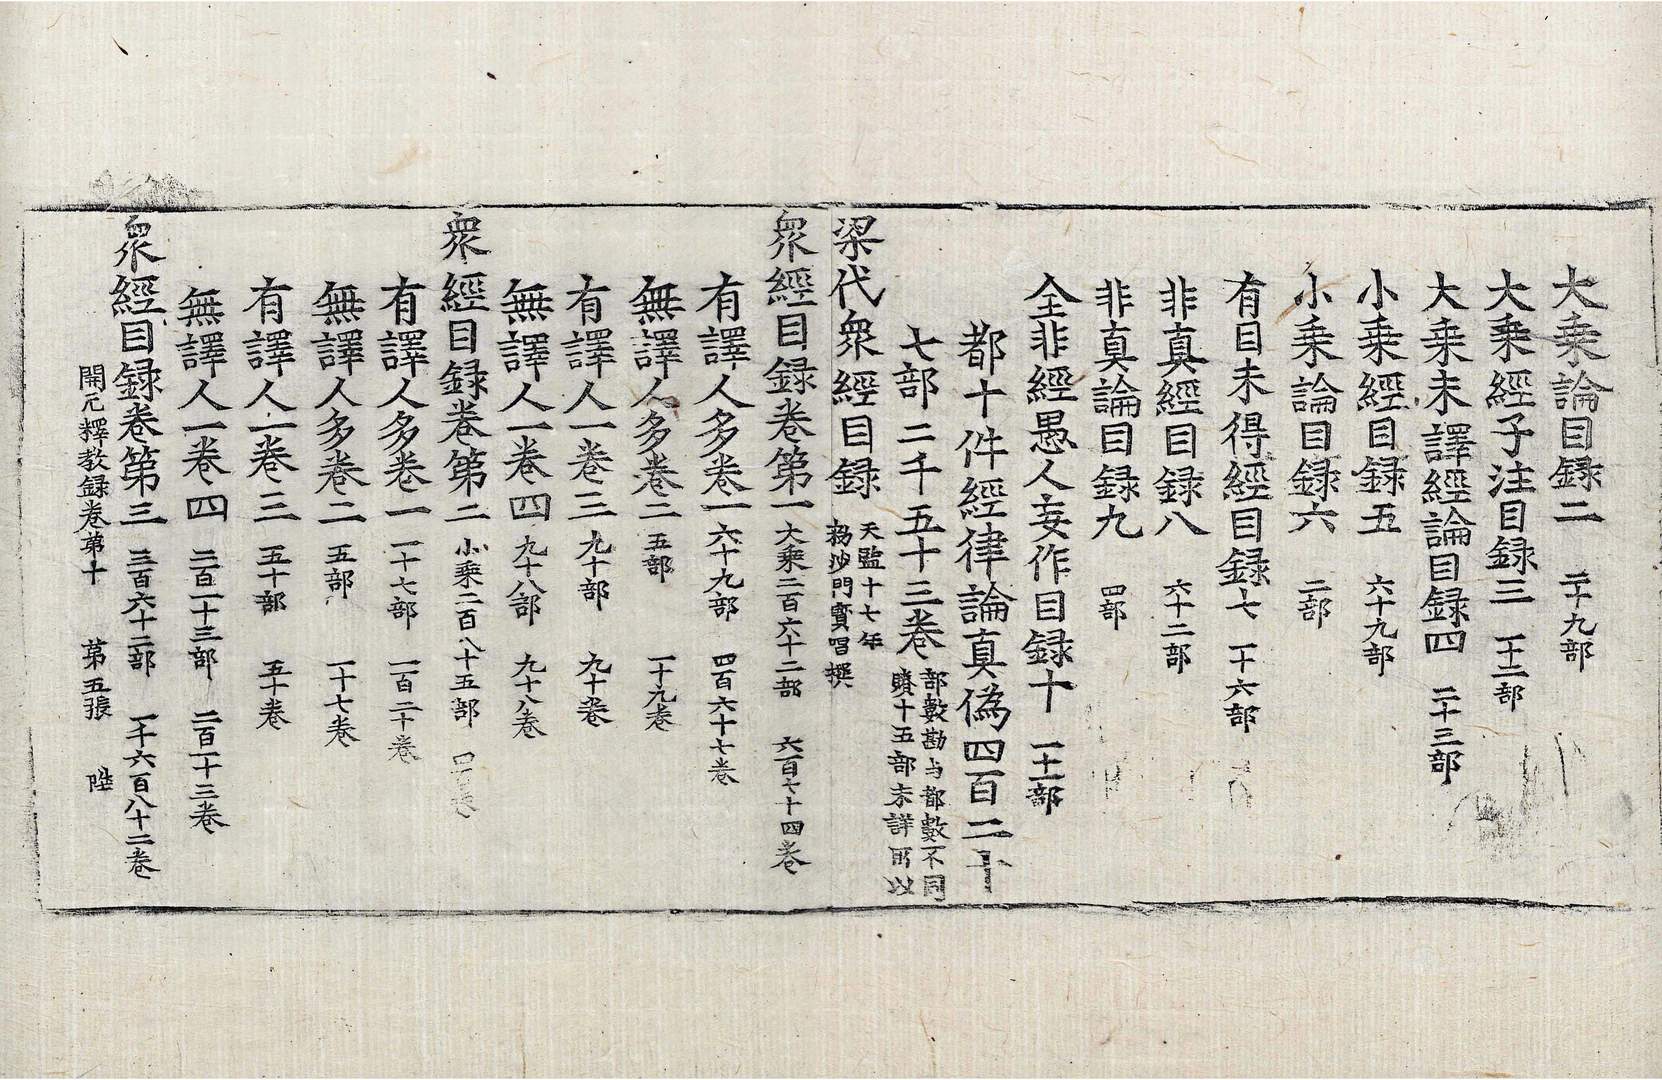 大乗論目録二 二十九部
大乗經子注目録三 一十二部
大乗未譯經論目録四 二十三部
小乗經目録五 六十九部
小乗論目録六 二部
有目未得經目録七 一十六部
非真經目録八 六十二部
非真論目録九 四部
全非經愚人妄作目録十 一十一部
都十件經律論真偽四百二十
七部二千五十三卷 部數勘与都數不同
賸十五部未詳所以
梁代衆經目録 天監十七年
勑沙門寳唱撰
衆經目録卷第一 大乗二百六十二部 六百七十四卷
有譯人多卷一 六十九部 四百六十七卷
無譯人多卷二 五部 一十九卷
有譯人一卷三 九十部 九十卷
無譯人一卷四 九十八部 九十八卷
衆經目録卷第二 小乗二百八十五部 四百卷
有譯人多卷一 一十七部 一百二十卷
無譯人多卷二 五部 一十七卷
有譯人一卷三 五十部 五十卷
無譯人一卷四 二百一十三部 二百一十三卷
衆經目録卷第三 三百六十二部 一千六百八十二卷
開元釋教録卷第十 第五張 陞